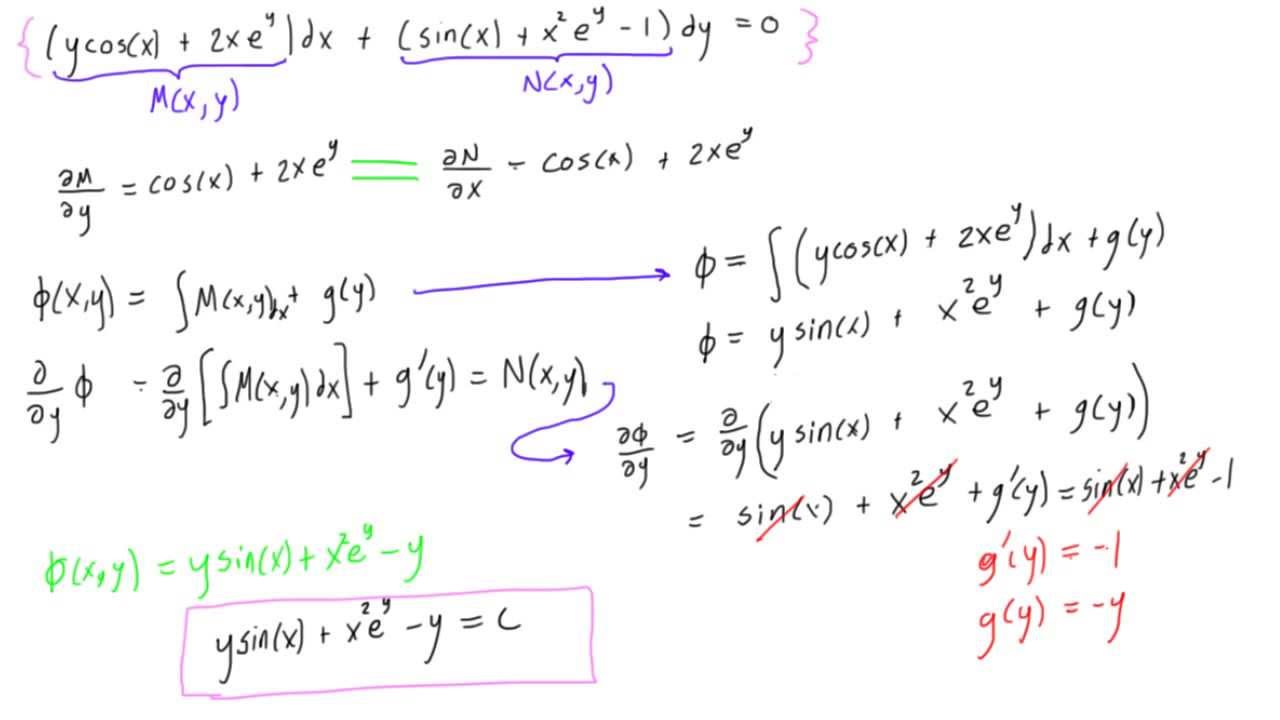 { (y cos(x) + 2x e^y) dx + (sin(x) + x² e^y - 1) dy = 0 }
M(x, y) N(x, y)
∂M/∂y = cos(x) + 2x e^y = ∂N/∂x = cos(x) + 2x e^y
ϕ(x, y) = ∫ M(x, y) dx + g(y)
∂/∂y ϕ = ∂/∂y [∫ M(x, y) dx] + g'(y) = N(x, y)
ϕ = ∫ (y cos(x) + 2x e^y) dx + g(y)
ϕ = y sin(x) + x² e^y + g(y)
∂ϕ/∂y = ∂/∂y (y sin(x) + x² e^y + g(y))
= sin(x) + x² e^y + g'(y) = sin(x) + x² e^y - 1
g'(y) = -1
g(y) = -y
ϕ(x, y) = y sin(x) + x² e^y - y
y sin(x) + x² e^y - y = C